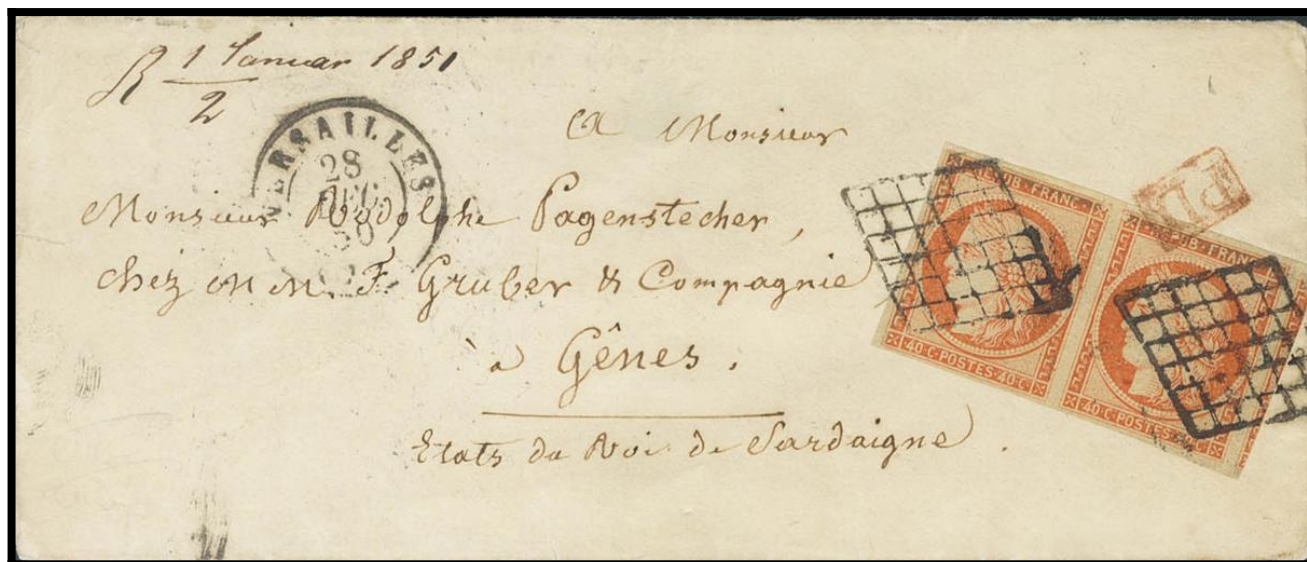 R 1 Januar 1851
2
VERSAILLES
28
DEC.
50
A Monsieur
Monsieur Rodolphe Pagenstecher,
chez M M. F. Gruber & Compagnie
à Gênes.
Etats du Roi de Sardaigne.
PD
REPUB-FRANC-
40·C·POSTES·40·C·
REPUB-FRANC-
40·C·POSTES